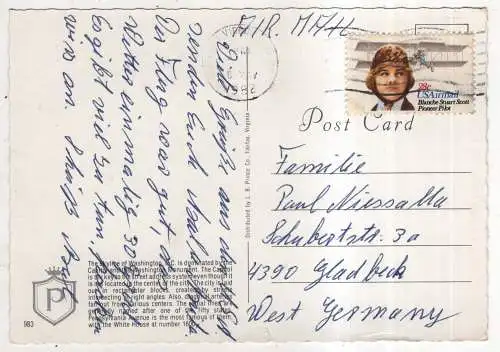 AIR. MAIL
28c
USAirmail
Blanche Stuart Scott
Pioneer Pilot
Post Card
Familie
Paul Niessalla
Schubertstr. 3a
4390 Gladbeck
West Germany
Viele Grüße aus
senden Euch
Der Flug war gut, das
Wetter einmalig 30 Grad
Es gibt viel zu tun,
Distributed by L. B. Prince Co. Fairfax, Virginia
The Skyline of Washington, D.C. is dominated by the
Capitol and the Washington Monument. The Capitol
is the key to the street address system even though it
is not located in the center of the city. The city is laid
out in rectangular blocks, created by streets
intersecting at right angles. Also,
generally named after one of the fifty states.
Pennsylvania Avenue is the most famous of them
with the White House at number 1600.
P
983